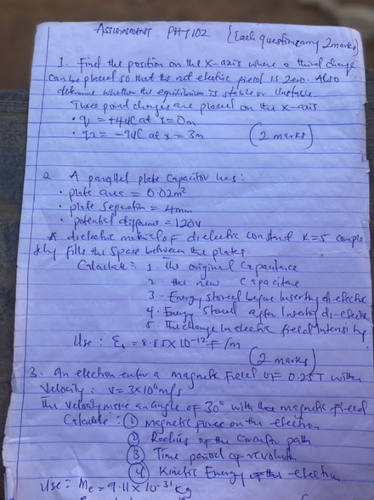 Assignment PHY102 {Each question carry 2marks
1. Find the position on the x-axis where a third charge
can be placed so that the net electric field is zero. Also
determine whether the equilibrium is stable or Unstable
Three point charges are placed on the x-axis
• q = +4µC at x = 0m
• q2 = -9µC at x = 3m (2 marks)
2. A parallel plate capacitor has:
• plate area = 0.02m²
• plate separation = 4mm
• potential difference = 120V
A dielectric material of dielectric constant K=5 comple
tely fills the space between the plates
Calculate: 1. The original Capacitance
2. the new Capacitance
3. Energy stored before Inserting di-electric
4. Energy Stored after Inserting di-electric
5. The change in electric field Intensity
Use: ε = 8.85X10⁻¹²F/m
(2 marks)
3. An electron enter a magnetic Field OF 0.25T with a
Velocity: V = 3X10⁶m/s
The velocity makes an angle of 30° with the magnetic field
Calculate: ① magnetic force on the electron
② Radius of the Circular path
③ Time period of revolution
④ Kinetic Energy of the electron
Use: Me = 9.11X10⁻³¹kg